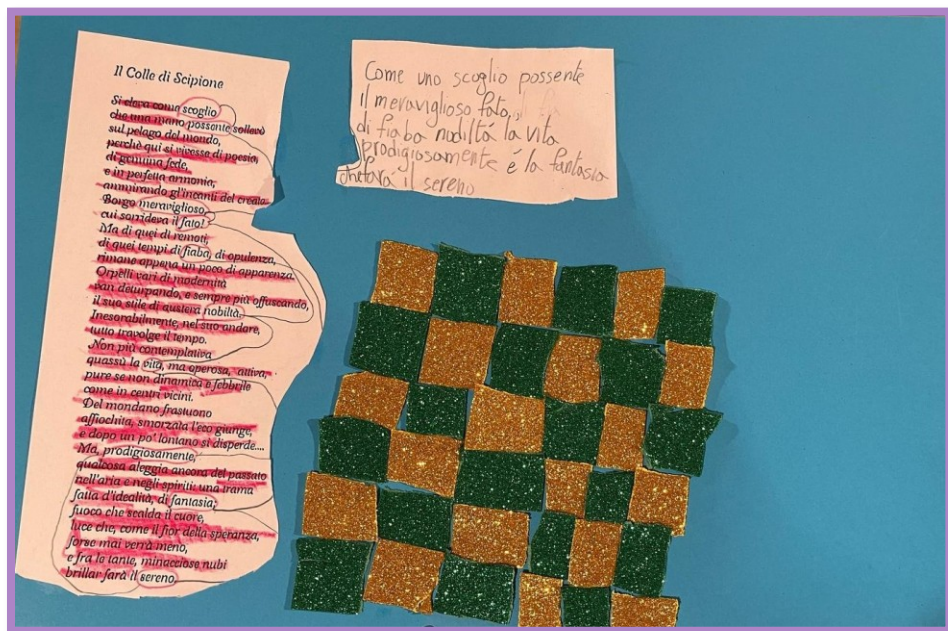 Il Colle di Scipione
Si eleva come scoglio
che una mano possente sollevò
sul pelago del mondo,
perchè qui si vivesse di poesia,
di genuina fede,
e in perfetta armonia,
ammirando gl'incanti del creato.
Borgo meraviglioso,
cui sorrideva il fato!
Ma di quei dì remoti,
di quei tempi di fiaba, di opulenza,
rimane appena un poco di apparenza.
Orpelli vari di modernità
van deturpando, e sempre più offuscando,
il suo stile di austera nobiltà.
Inesorabilmente, nel suo andare,
tutto travolge il tempo.
Non più contemplativa
quassù la vita, ma operosa, attiva,
pure se non dinamica e febbrile
come in centri vicini.
Del mondano frastuono
affiochita, smorzata l'eco giunge,
e dopo un po' lontano si disperde....
Ma, prodigiosamente,
qualcosa aleggia ancora del passato
nell'aria e negli spiriti una trama
fatta d'idealità, di fantasia;
fuoco che scalda il cuore,
luce che, come il fior della speranza,
forse mai verrà meno,
e fra le tante, minacciose nubi
brillar farà il sereno.
Come uno scoglio possente
il meraviglioso fato,
di fiaba nodiltà la vita
prodigiosamente é la fantasia
il sereno